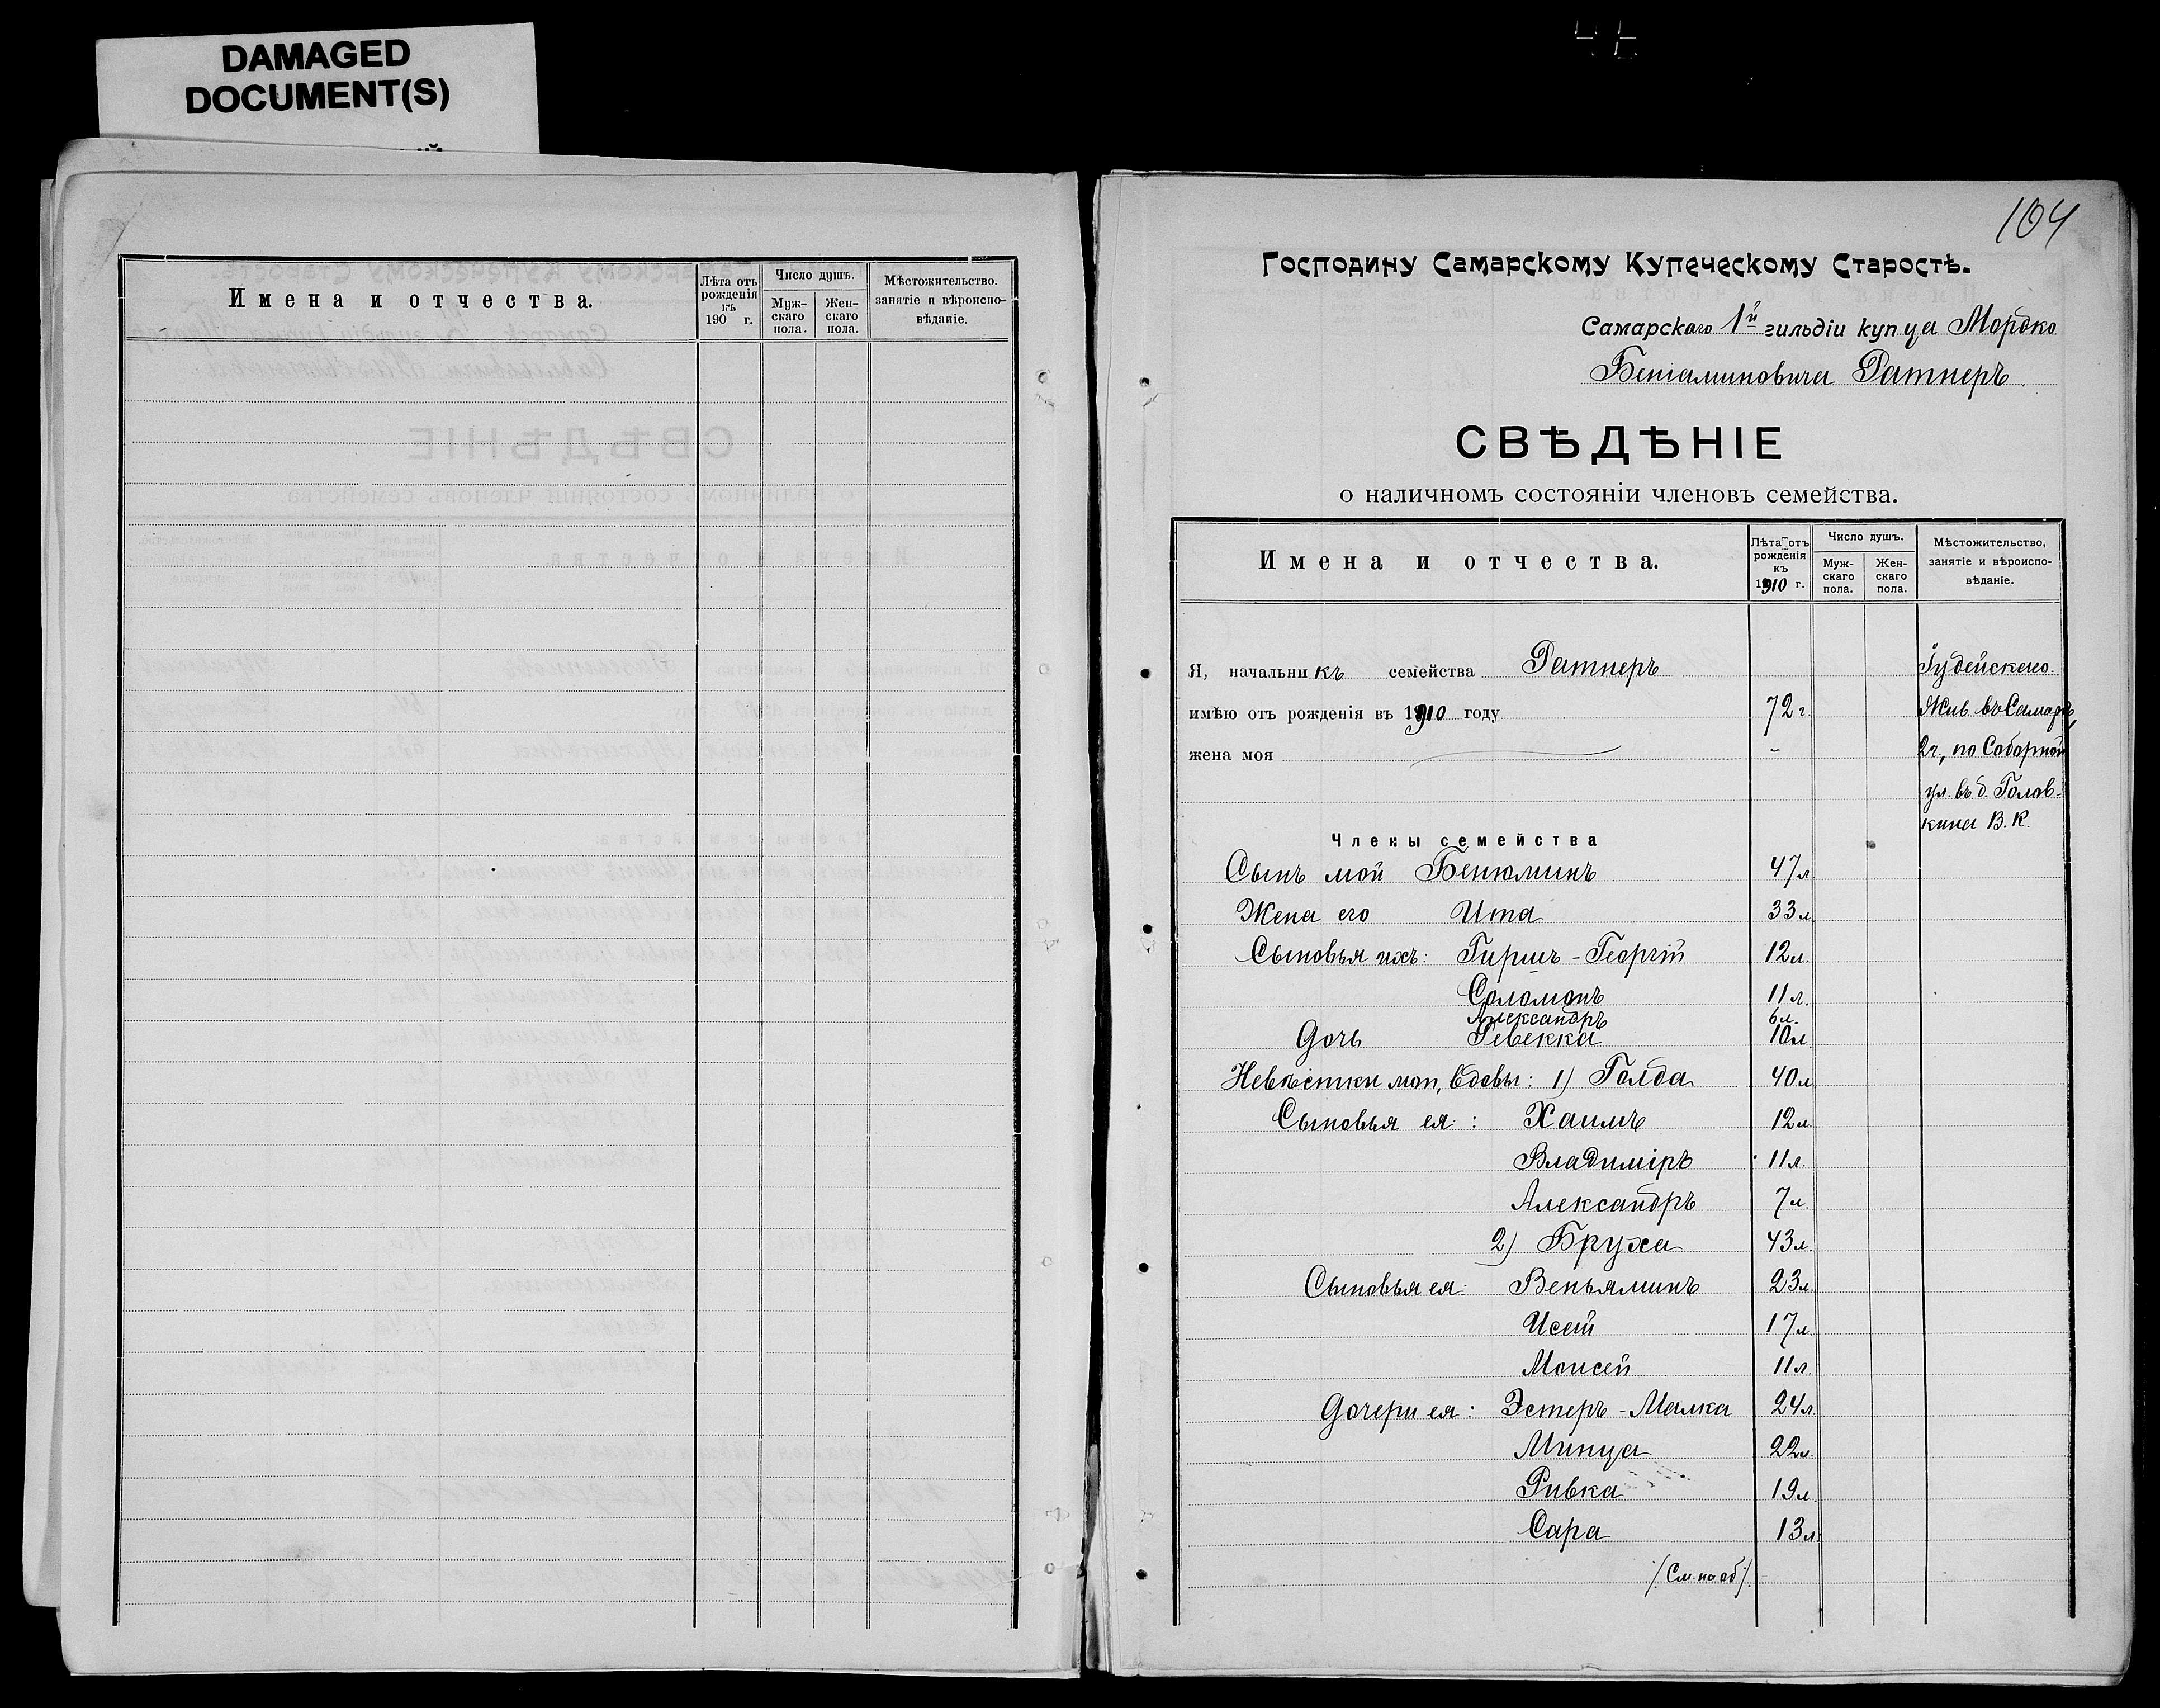 DAMAGED
DOCUMENT(S)
Имена и отчества.
Лѣта отъ рожденія къ 190 г.
Число душъ.
Мужскаго пола.
Женскаго пола.
Мѣстожительство. занятіе и вѣроисповѣданіе.
104
Господину Самарскому Купеческому Старостѣ.
Самарскаго 1й гильдіи купца Мордко
Беніаминовича Ратнеръ.
СВѢДѢНІЕ
о наличномъ состояніи членовъ семейства.
Имена и отчества.
Лѣта отъ рожденія къ 1910 г.
Число душъ.
Мужскаго пола.
Женскаго пола.
Мѣстожительство, занятіе и вѣроисповѣданіе.
Я, начальникъ семейства Ратнеръ Іудейскаго.
имѣю отъ рожденія въ 1910 году 72 г. Жив. въ Самарѣ,
жена моя — - 2 ч., по Соборной
ул. въ д. Голов-
кина В. К.
Члены семейства
Сынъ мой Бенюминъ 47 л
Жена его Ита 33 л
Сыновья ихъ: Гиршъ - Георгій 12 л.
Соломонъ 11 л.
Александръ 6 л.
Дочь Ревекка 10 л.
Невѣстки мои, вдовы: 1) Голда 40 л
Сыновья ея: Хаимъ 12 л
Владиміръ 11 л.
Александръ 7 л.
2) Бруха 43 л.
Сыновья ея: Веньяминъ 23 л.
Исей 17 л.
Моисей 11 л.
Дочери ея: Эстеръ - Малка 24 л.
Минца 22 л.
Ривка 19 л.
Сара 13 л.
/См. на об./